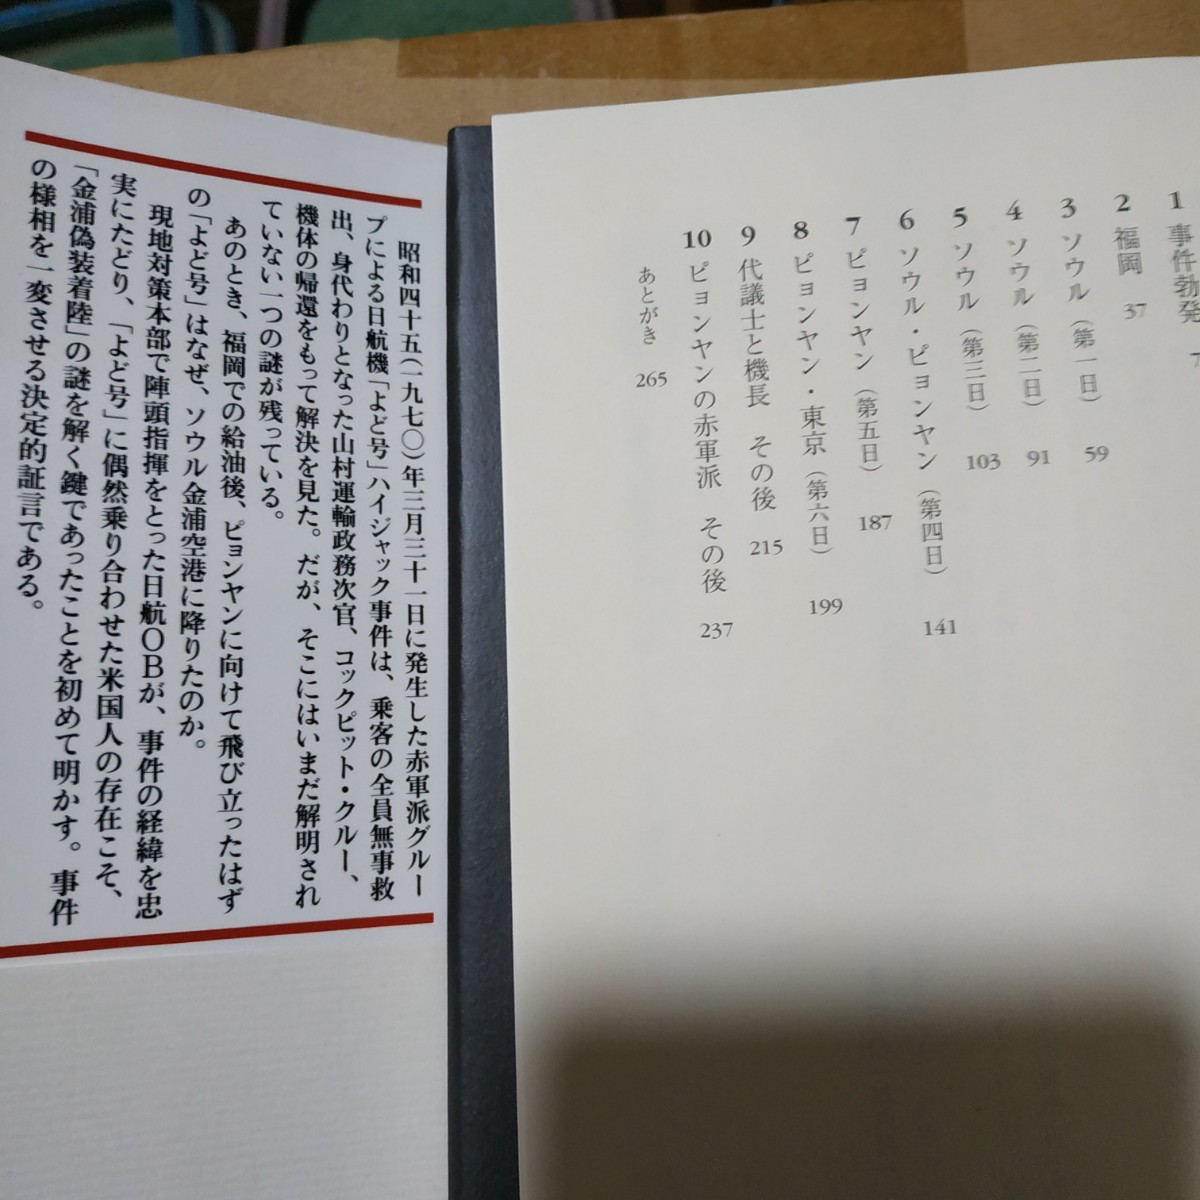 1 事件勃発 7
2 福岡 37
3 ソウル(第一日) 59
4 ソウル(第二日) 91
5 ソウル(第三日) 103
6 ソウル・ピョンヤン(第四日) 141
7 ピョンヤン(第五日) 187
8 ピョンヤン・東京(第六日) 199
9 代議士と機長 その後 215
10 ピョンヤンの赤軍派 その後 237
あとがき 265
昭和四十五(一九七〇)年三月三十一日に発生した赤軍派グルー
プによる日航機「よど号」ハイジャック事件は、乗客の全員無事救
出、身代わりとなった山村運輸政務次官、コックピット・クルー、
機体の帰還をもって解決を見た。だが、そこにはいまだ解明され
ていない一つの謎が残っている。
あのとき、福岡での給油後、ピョンヤンに向けて飛び立ったはず
の「よど号」はなぜ、ソウル金浦空港に降りたのか。
現地対策本部で陣頭指揮をとった日航OBが、事件の経緯を忠
実にたどり、「よど号」に偶然乗り合わせた米国人の存在こそ、
「金浦偽装着陸」の謎を解く鍵であったことを初めて明かす。事件
の様相を一変させる決定的証言である。